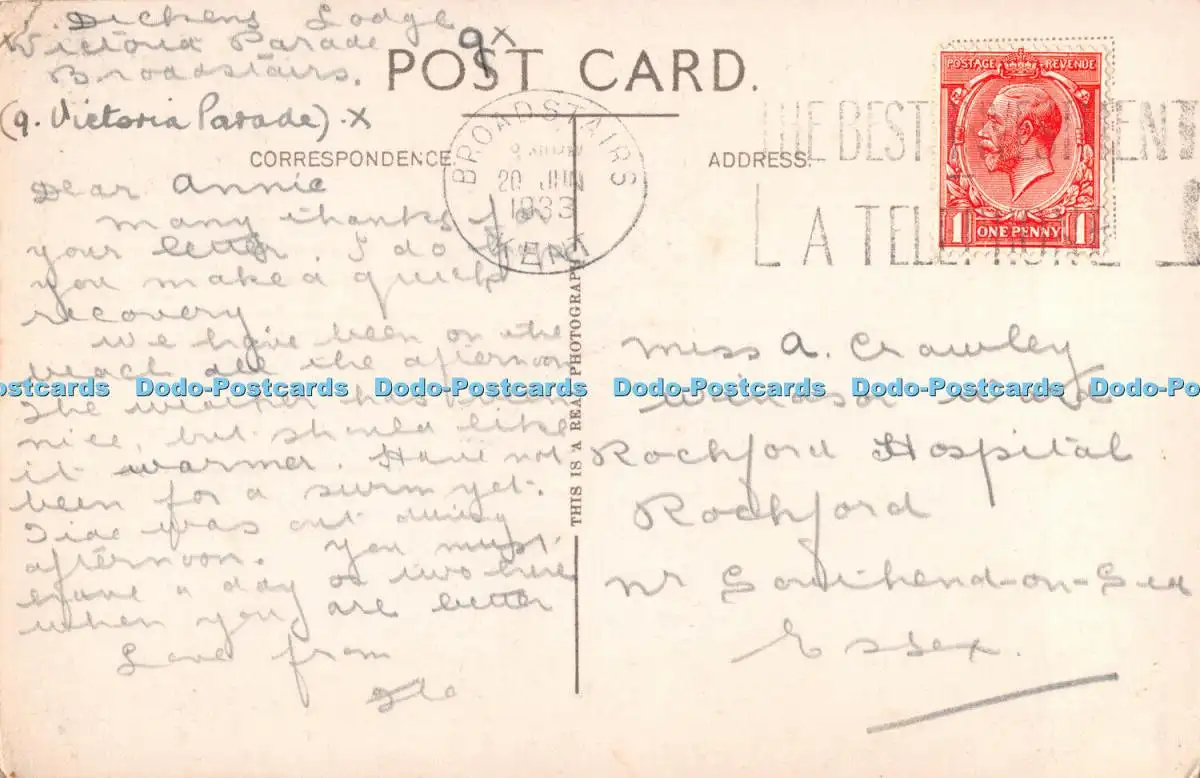 Dickens Lodge
Victoria Parade
Broadstairs.
(9. Victoria Parade). X
9 X
POST CARD.
CORRESPONDENCE.
ADDRESS.
BROADSTAIRS
20 JUN
1933
KENT
THE BEST
A TELEPHONE
POSTAGE REVENUE
1 ONE PENNY 1
THIS IS A REAL PHOTOGRAPH
Dear Annie
Many thanks for
your letter I do hope
you make a quick
recovery
We have been on the
beach all the afternoon
The weather has been
nice but should like
it warmer. Have not
been for a swim yet.
Tide was out during
afternoon. You must
have a day or two here
when you are better
Love from
Miss A. Crawley
Windsor Ward
Rochford Hospital
Rochford
Nr Southend-on-Sea
Essex.
Dodo-Postcards Dodo-Postcards Dodo-Postcards Dodo-Postcards